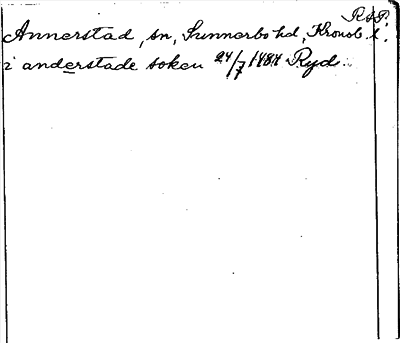 R.A.P.
Annerstad, sn, Sunnerbo hd, Kronob. l.
i anderstade soken 24/7 1484 Ryd.